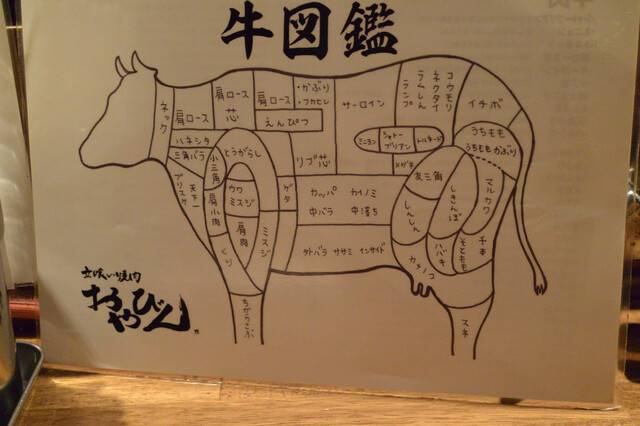 牛図鑑
ネック
肩ロース
肩ロース
芯
肩ロース
・かぶり
・フカヒレ
えんぴつ
リブ芯
サーロイン
コウモリ
ネクタイ
ラムしん
ランプ
イチボ
ハネシタ
三角バラ
小三角
とうがらし
ミニヨン
シャトーブリアン
トルネード
メガネ
うちもも
うちももかぶり
ブリスケ
天下一
肩小肉
ウワ
ミスジ
肩肉
くり
ミスジ
ゲタ
カッパ カイノミ
中バラ 中落ち
外バラ ササミ インサイド
友三角
しんしん
しきんぼ
マルカワ
ハバキ
そともも
千本
カメノコ
ちからこぶ
スネ
立喰い焼肉
おやびん